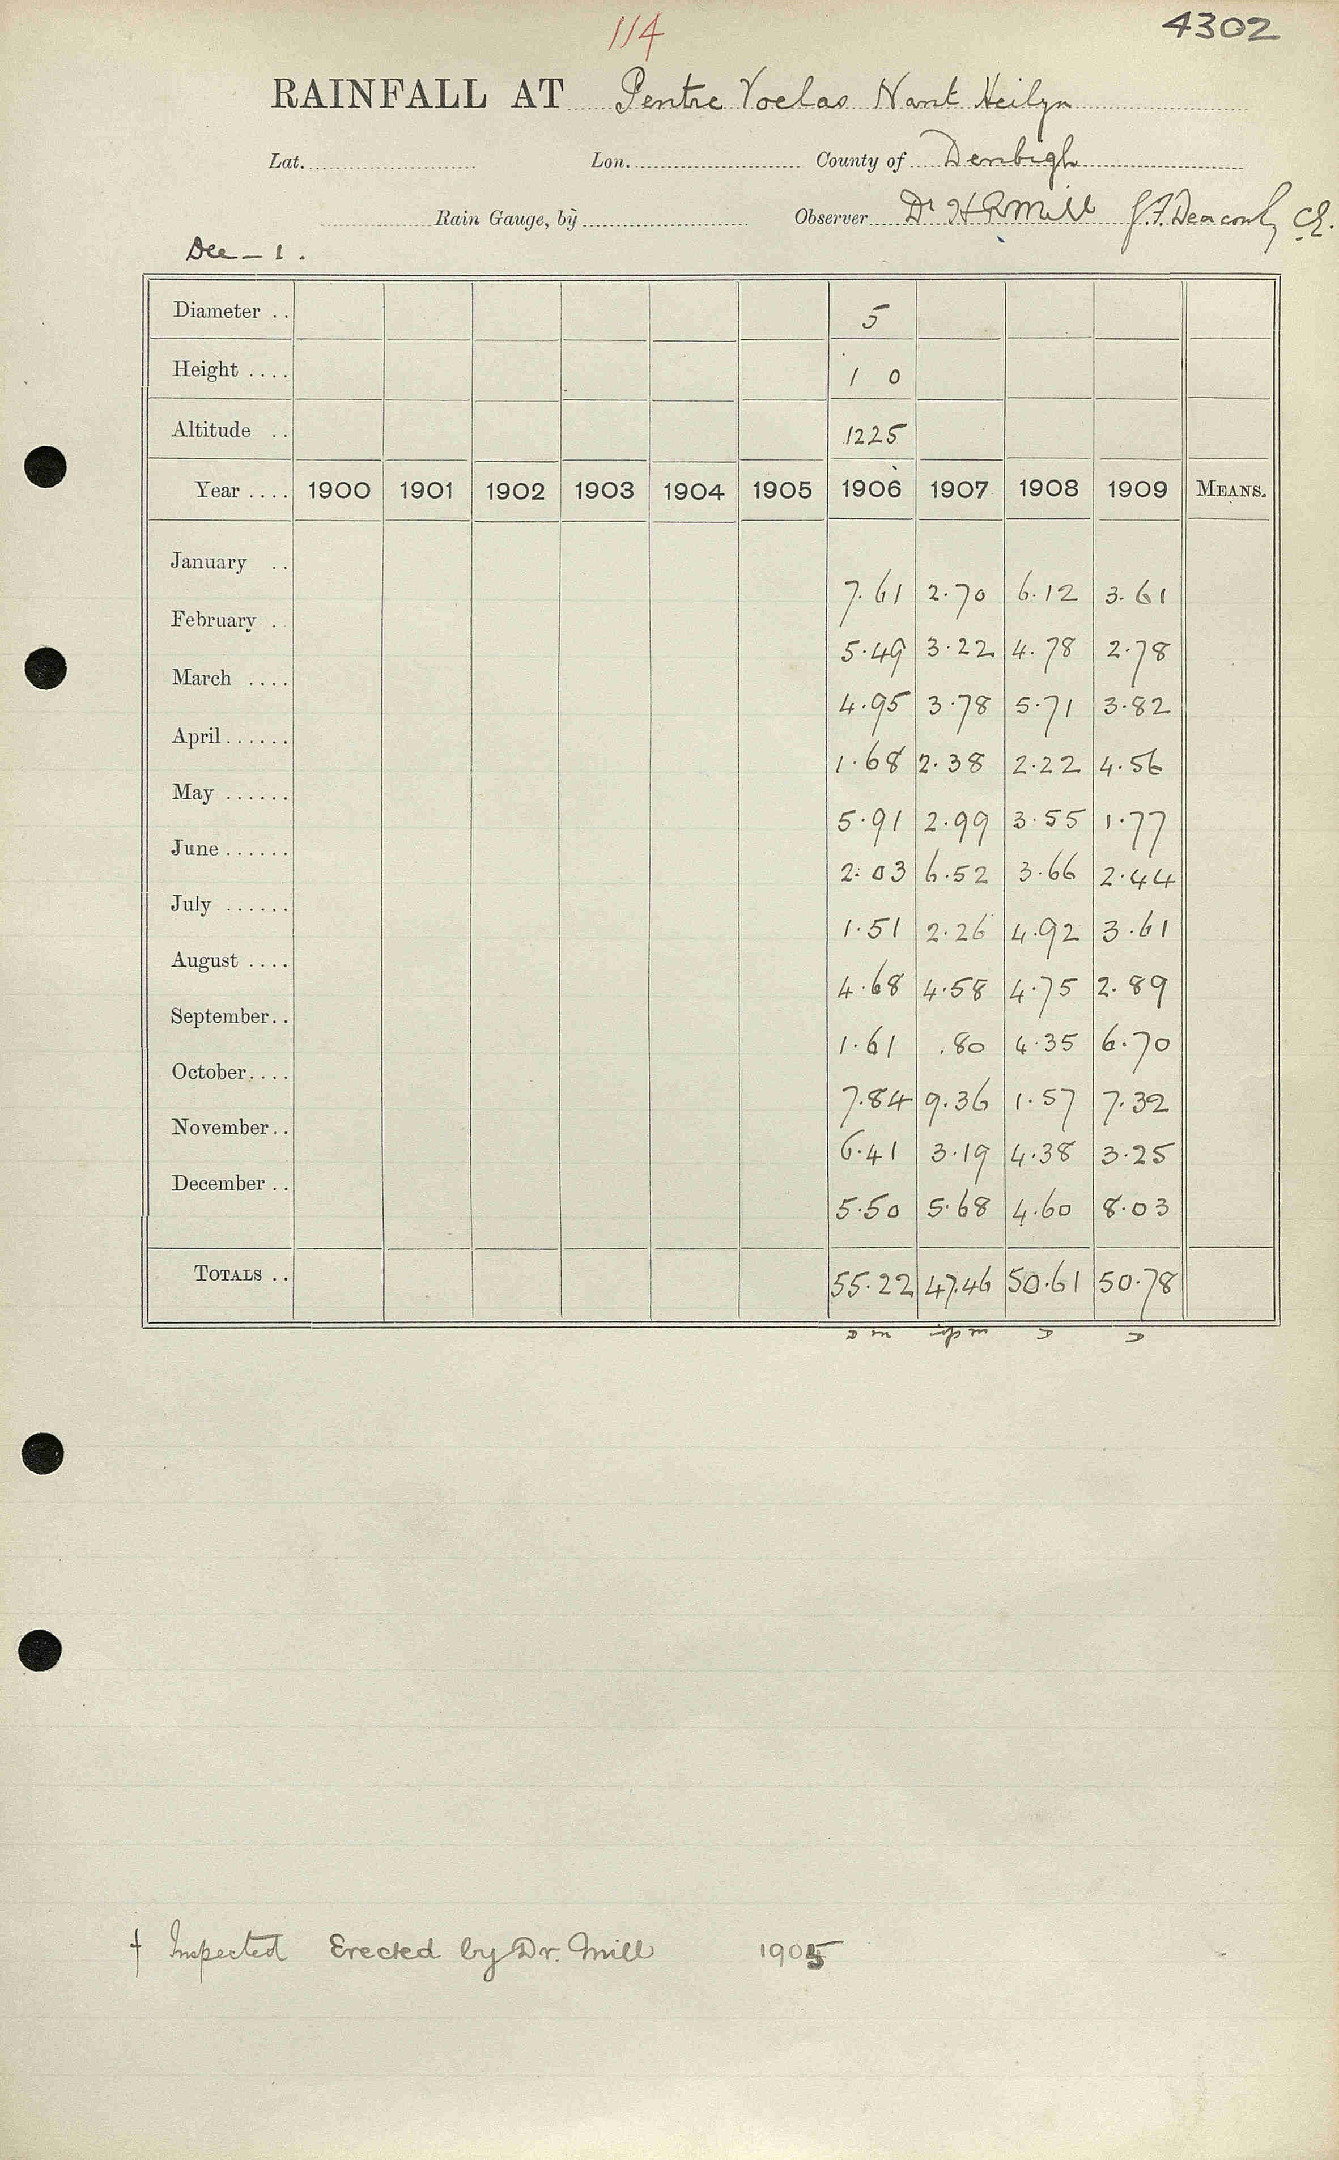 114
4302
RAINFALL AT Pentre Voelas Nant Heilyn
Lat. Lon. County of Denbigh
Rain Gauge, by Observer Dr H R Mill G. F. Deacon C.E.
Dec - 1.
Diameter .. 5
Height .... 1 0
Altitude .. 1225
Year .... 1900 1901 1902 1903 1904 1905 1906 1907 1908 1909 MEANS.
January .. 7.61 2.70 6.12 3.61
February .. 5.49 3.22 4.78 2.78
March .... 4.95 3.78 5.71 3.82
April ...... 1.68 2.38 2.22 4.56
May ...... 5.91 2.99 3.55 1.77
June ...... 2.03 6.52 3.66 2.44
July ...... 1.51 2.26 4.92 3.61
August .... 4.68 4.58 4.75 2.89
September.. 1.61 .80 4.35 6.70
October.... 7.84 9.36 1.57 7.32
November.. 6.41 3.19 4.38 3.25
December .. 5.50 5.68 4.60 8.03
TOTALS .. 55.22 47.46 50.61 50.78
† Inspected Erected by Dr. Mill 1905